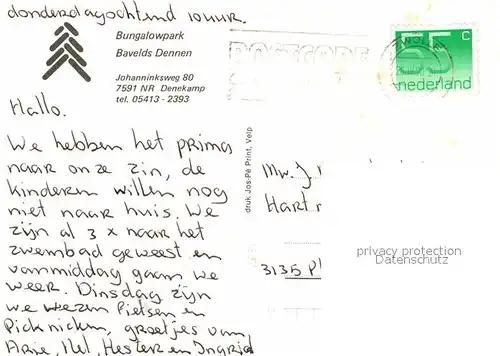 donderdagochtend 10 uur.
Bungalowpark
Bavelds Dennen
Johanninksweg 80
7591 NR Denekamp
tel. 05413 - 2393
POSTCODE
ZWOLLE
55 c
nederland
Hallo.
We hebben het prima
naar onze zin, de
kinderen willen nog
niet naar huis. We
zijn al 3 x naar het
zwembad geweest en
vanmiddag gaan we
weer. Dinsdag zijn
we wezen fietsen en
Picknicken, groetjes van
Arie, Nel, Hester en Ingrid
druk Jos-Pé Print, Velp
Mw. J.
Hart
3135 P
privacy protection
Datenschutz